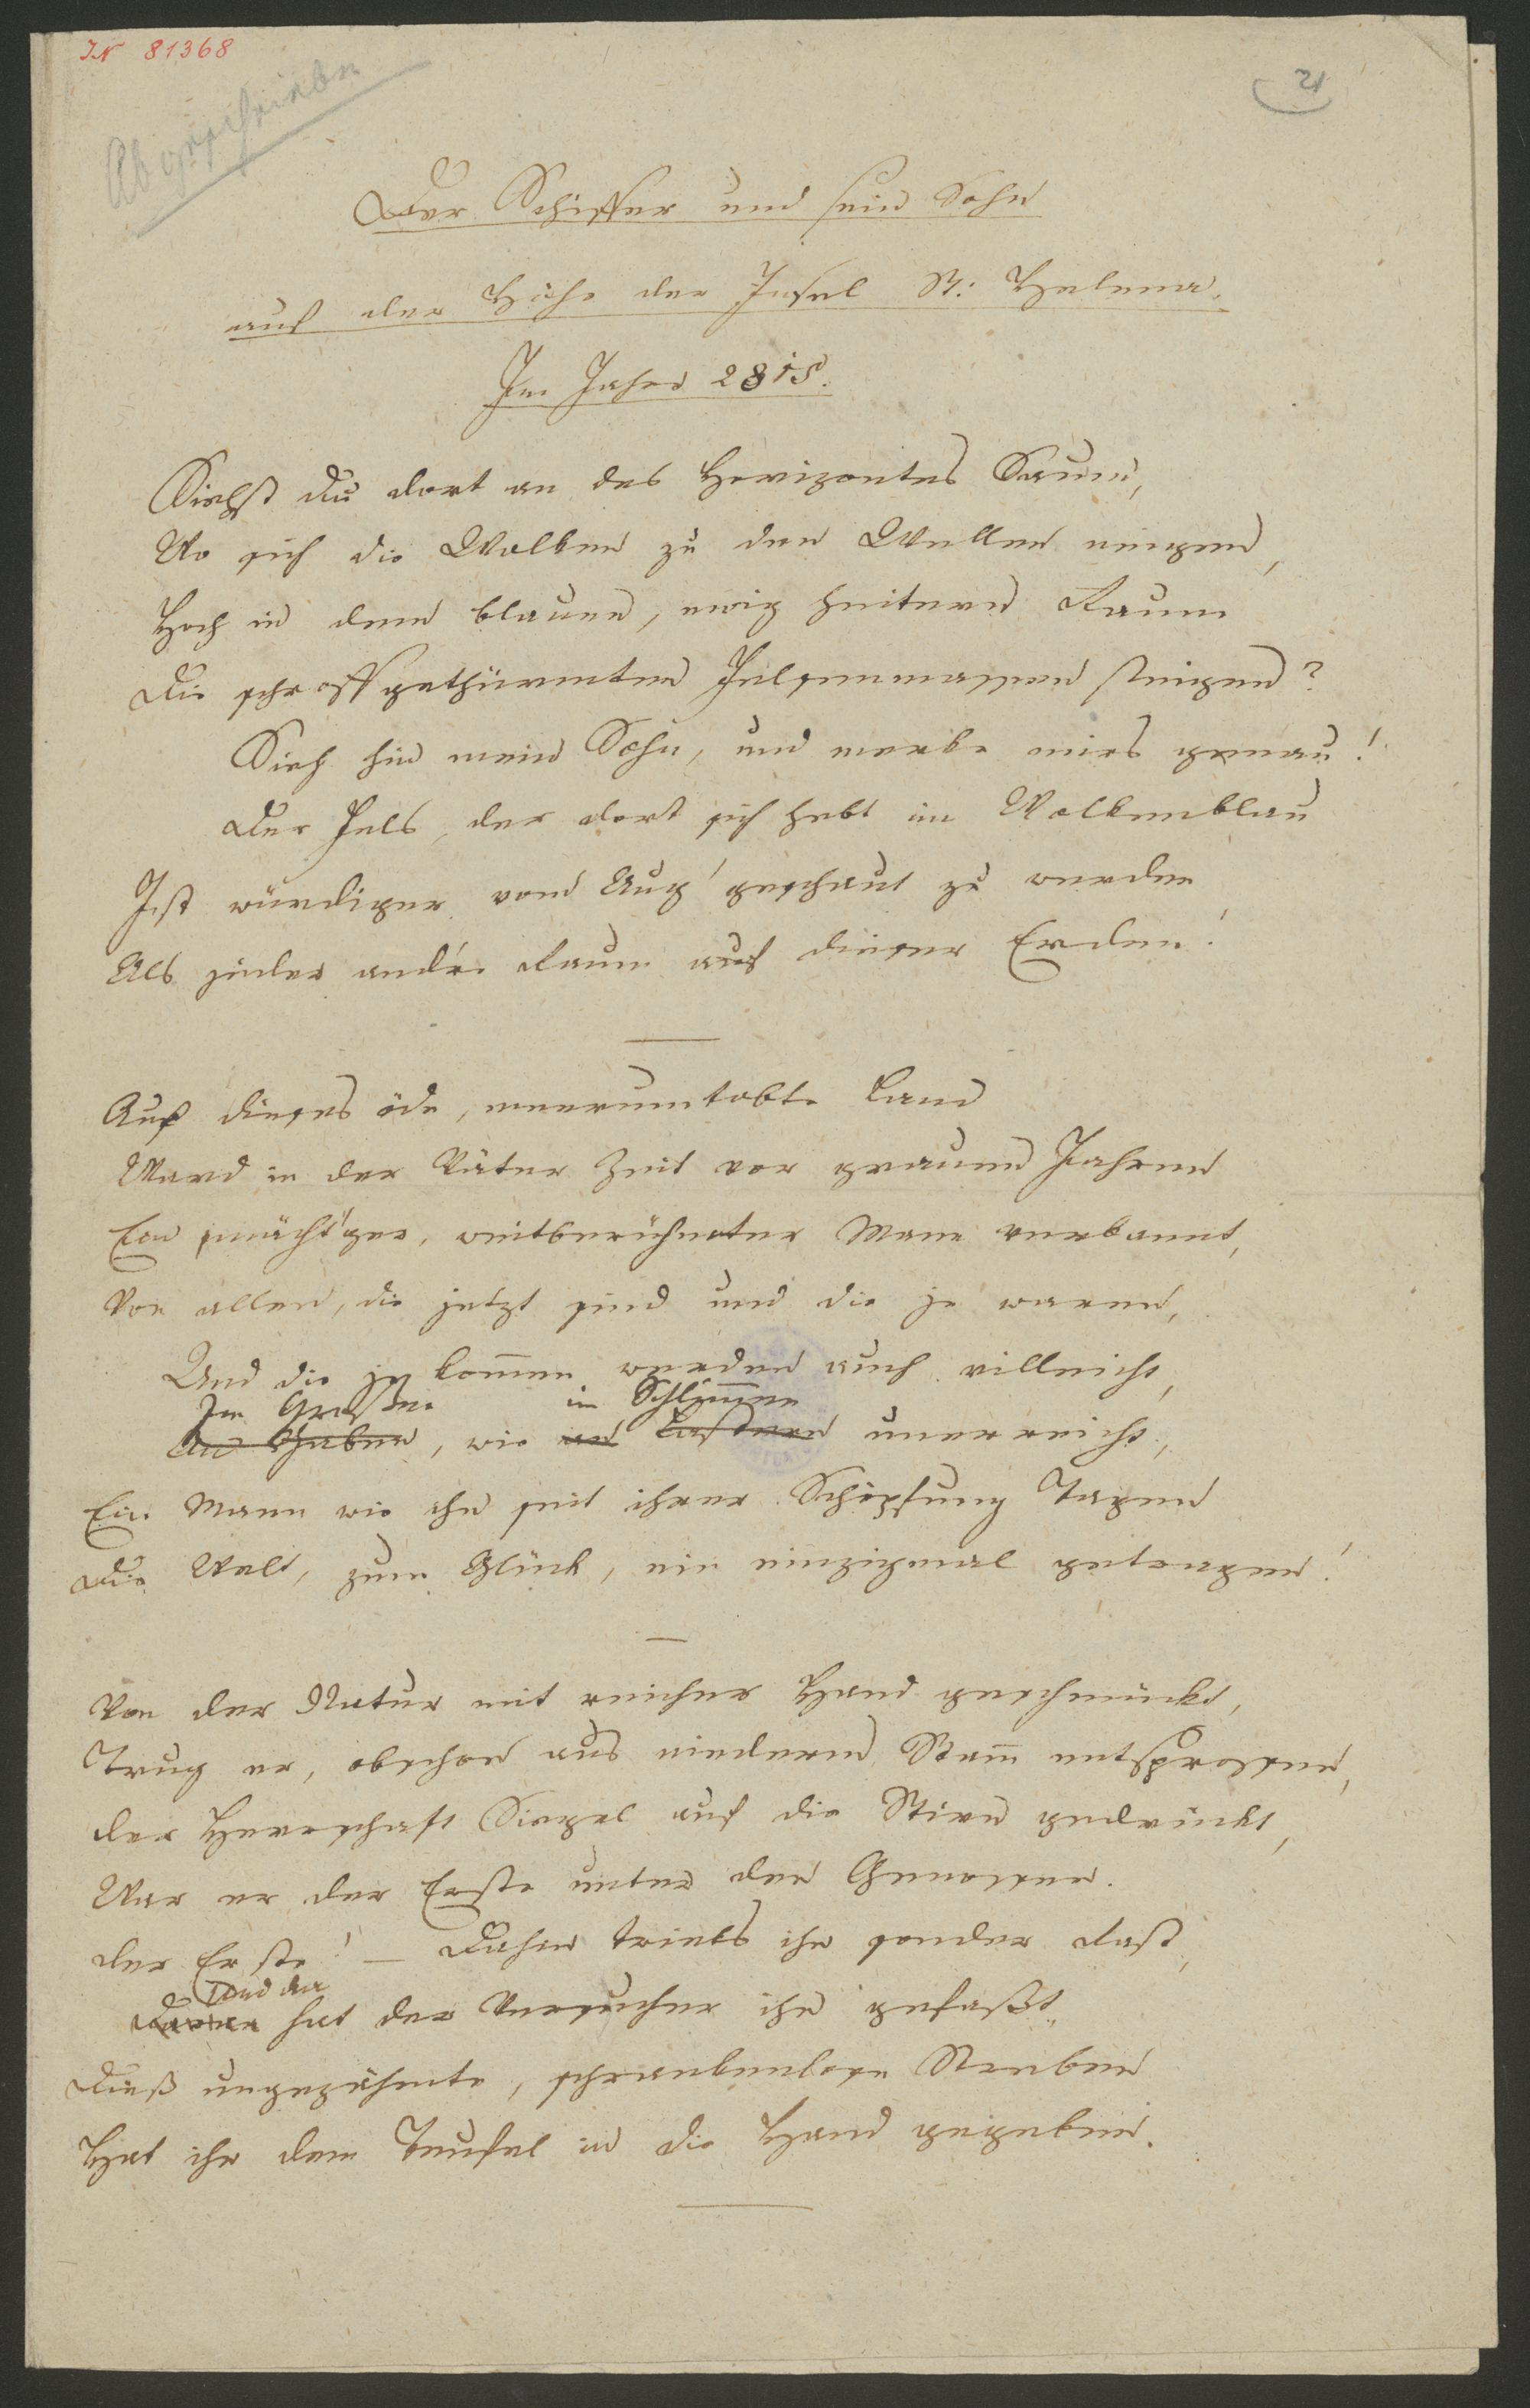 IN 81368
Abgeschrieben
21
Der Schiffer und sein Sohn
auf der Höhe der Insel St: Helena.
Im Jahre 2815.
Siehst du dort an des Horizontes Saum,
Wo sich die Wolken zu den Wellen neigen,
Hoch in dem blauen, ewig heitern Raum
Die schroffgethürmten Felsenmassen steigen?
Sieh hin mein Sohn, und merke mirs genau!
Der Fels, der dort sich hebt im Wolkenblau
Ist würdiger vom Aug' geschaut zu werden
Als jeder and're Raum auf dieser Erden!
Auf dieses öde, meerumtobte Land
Ward in der Väter Zeit vor grauen Jahren
Ein mächt'ger, weitberühmter Mann verbannt,
Vor allen, die jetzt sind und die je waren,
Und die je kom̄en werden auch villeicht,
Im Großen im Schlim̄en
An Gaben, wie an Lastern unerreicht,
Ein Mann wie ihn seit ihrer Schöpfung Tagen
Die Welt, zum Glück, ein einzigmal getragen!
Von der Natur mit reicher Hand geschmückt,
Trug er, obschon aus niederm Stam̄ entsprossen,
der Herrschaft Siegel auf die Stirn gedrückt,
War er der Erste unter den Genossen.
der Erste! – Dahin triebs ihn sonder Rast,
Und da
hat der Versucher ihn gefaßt,
Dieß ungezähmte, schrankenlose Streben
Hat ihn dem Teufel in die Hand gegeben.